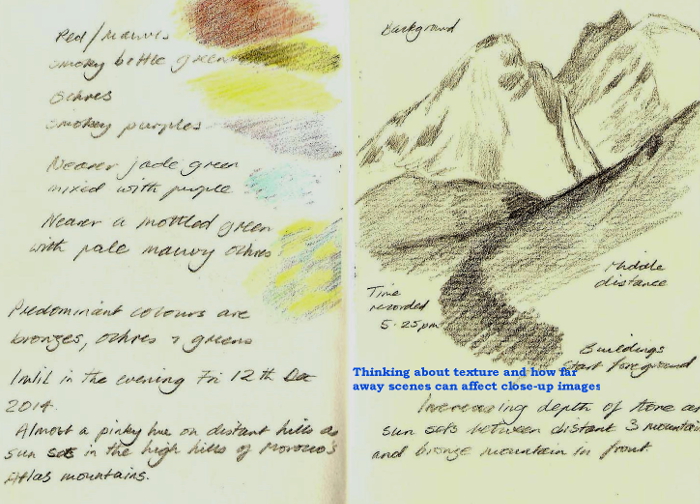 Red/Mauves
smoky bottle green
Ochres
smokey purples
Nearer jade green
mixed with purple
Nearer a mottled green
with pale mauvy ochres
Predominant colours are
bronzes, ochres & greens
Imlil in the evening Fri 12th Dec
2014.
Almost a pinky hue on distant hills as
sun sets in the high hills of Morocco's
Atlas mountains.
Background
Middle
distance
Time
recorded
5.25pm
Buildings
start foreground
Thinking about texture and how far
away scenes can affect close-up images
Increasing depth of tone as
sun sets between distant 3 mountain
and bronze mountain in front.